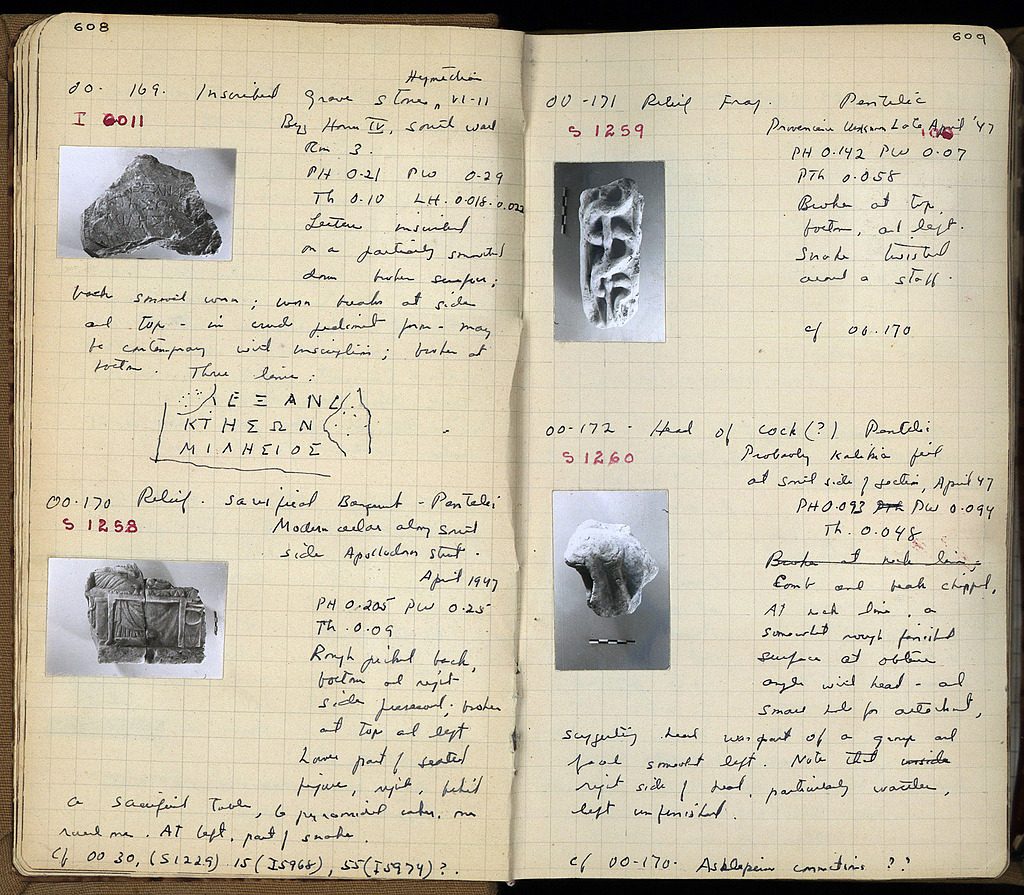 608
OO. 169. Inscribed grave stone, Hymettian VI-11
I 6011
Byz House IV, south wall
Rm 3.
PH 0.21 PW 0.29
Th 0.10 LH. 0.018-0.022
Letters inscribed
on a partially smoothed
down broken surface;
back smooth worn; worn breaks at sides
and top - in crude pediment form - may
be contemporary with inscription; broken at
bottom. Three lines:
ΛΕΞΑΝ
ΚΤΗΣΩΝ
ΜΙΛΗΣΙΟΣ
OO-170 Relief. Sacrificial Banquet - Pentelic
S 1258
Modern cellar along south
side Apollodorus street.
April 1947
PH 0.205 PW 0.25
Th. 0.09
Rough picked back,
bottom and right
side preserved; broken
at top and left
Lower part of seated
figure, right, behind
a sacrificial table, 6 pyramidal cakes, on
At left, part of snake
Cf OO 30, (S1229) 15 (IS968), 55 (IS974)?
609
OO-171 Relief Frag. Pentelic
S 1259
Provenience Unknown Late April '47
PH 0.142 PW 0.07
PTh 0.058
Broken at top,
bottom, and left.
Snake twisted
around a staff.
cf OO-170
OO-172 - Head of cock (?) Pentelic
S 1260
Probably Kalikia fill
at south side of section, April 47
PH 0.093 PW 0.094
Th. 0.048
Broken at neck line;
Comb and beak chipped,
At neck line, a
somewhat rough finished
surface at obtuse
angle with head - and
small hole for attachment,
suggesting head was part of a group and
faced somewhat left. Note that inside
right side of head, particularly wattles,
left unfinished.
cf OO-170. Asklepeion connections ??